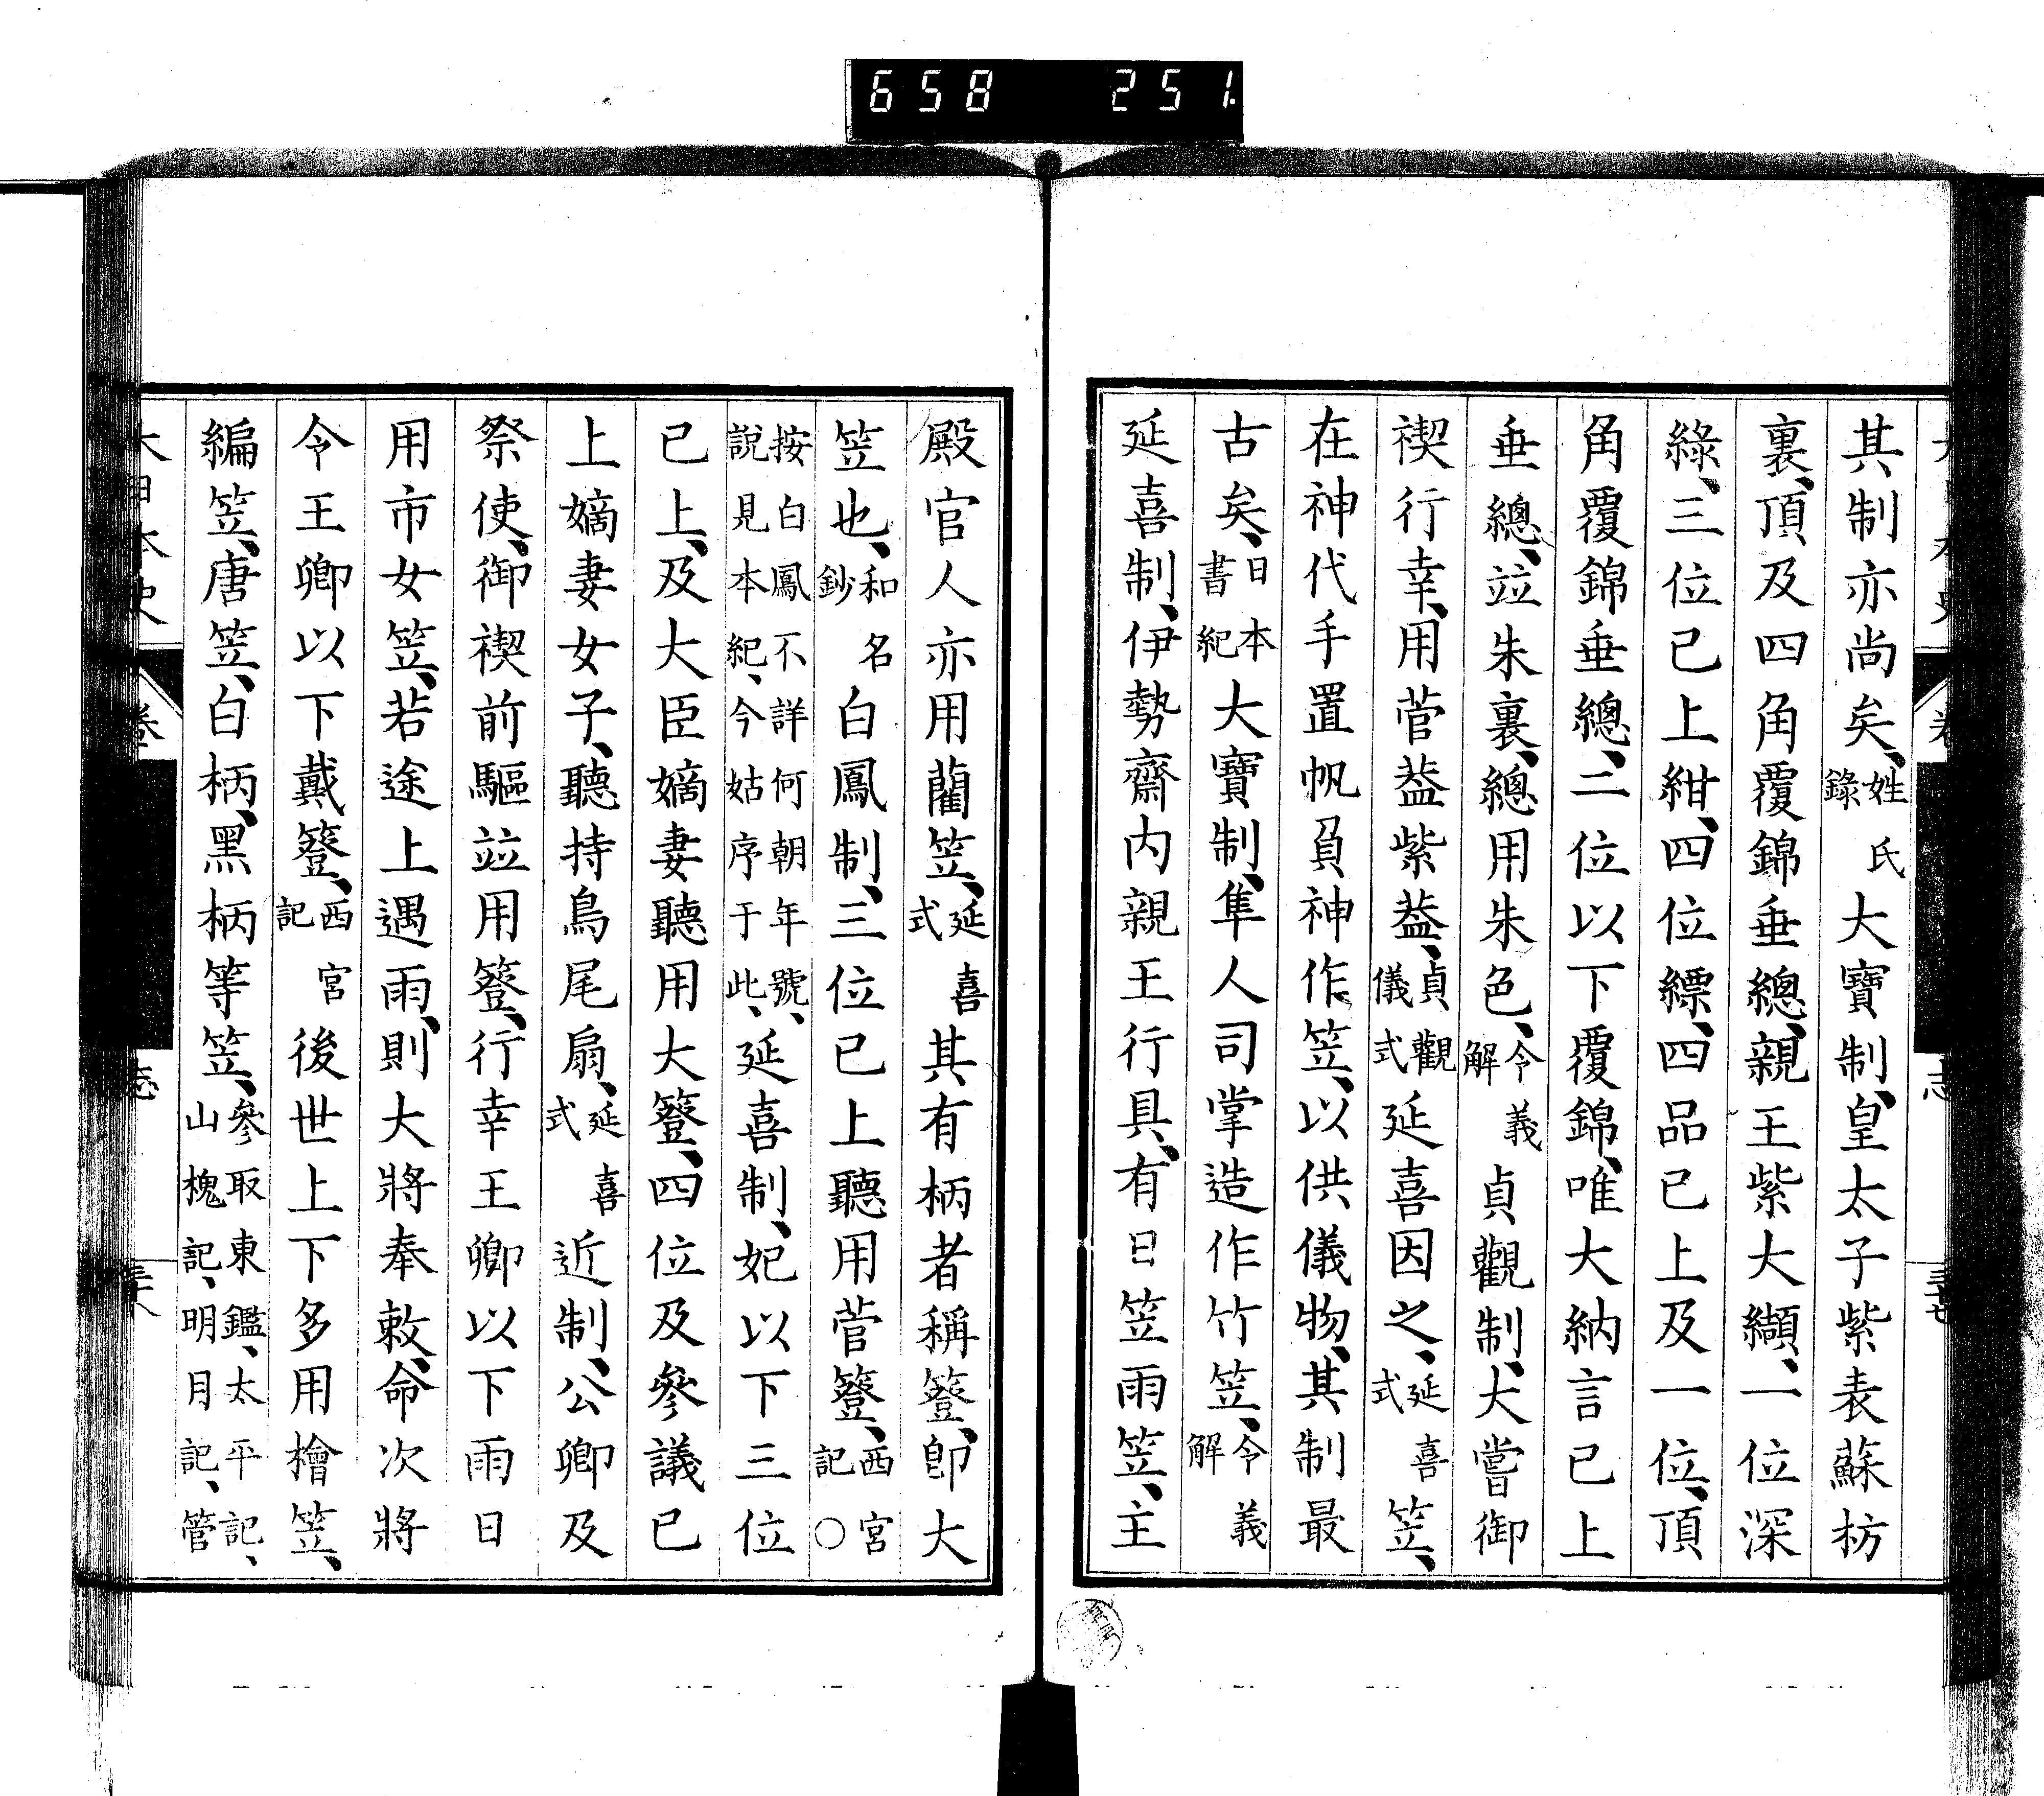 658 251.
其制亦尚矣、姓氏錄大寶制、皇太子紫表蘇枋
裏、頂及四角覆錦垂總、親王紫大纈、一位深
綠、三位已上紺、四位縹、四品已上及一位、頂
角覆錦垂總、二位以下覆錦、唯大納言已上
垂總、竝朱裏、總用朱色、令義解貞觀制、大嘗御
禊行幸、用菅葢紫葢、貞觀儀式延喜因之、延喜式笠、
在神代手置帆負神作笠、以供儀物、其制最
古矣、日本書紀大寶制、隼人司掌造作竹笠、令義解
延喜制、伊勢齋內親王行具、有日笠雨笠、主
殿官人亦用藺笠、延喜式其有柄者稱簦、卽大
笠也、和名鈔白鳳制、三位已上聽用菅簦、西宮記○
按白鳳不詳何朝年號、說見本紀、今姑序于此、延喜制、妃以下三位
已上、及大臣嫡妻聽用大簦、四位及參議已
上嫡妻女子、聽持鳥尾扇、延喜式近制、公卿及
祭使、御禊前驅竝用簦、行幸王卿以下雨日
用市女笠、若途上遇雨、則大將奉敕、命次將
令王卿以下戴簦、西宮記後世上下多用檜笠、
編笠、唐笠、白柄、黑柄等笠、參取東鑑、太平記、山槐記、明月記、管